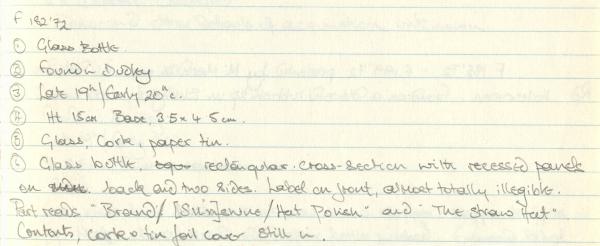 F 182'72
① Glass Bottle.
② Found in Dudley
③ Late 19th/Early 20th c.
④ Ht 15cm Base, 3.5 x 4.5 cm.
⑤ Glass, Cork, paper tin.
⑥ Glass bottle, rectangular cross-section with recessed panels
on back and two sides. Label on front, almost totally illegible.
Part reads "Brand/ [Sun]enne/Hat Polish" and "The Straw Hat"
Contents, cork & tin foil cover still in.